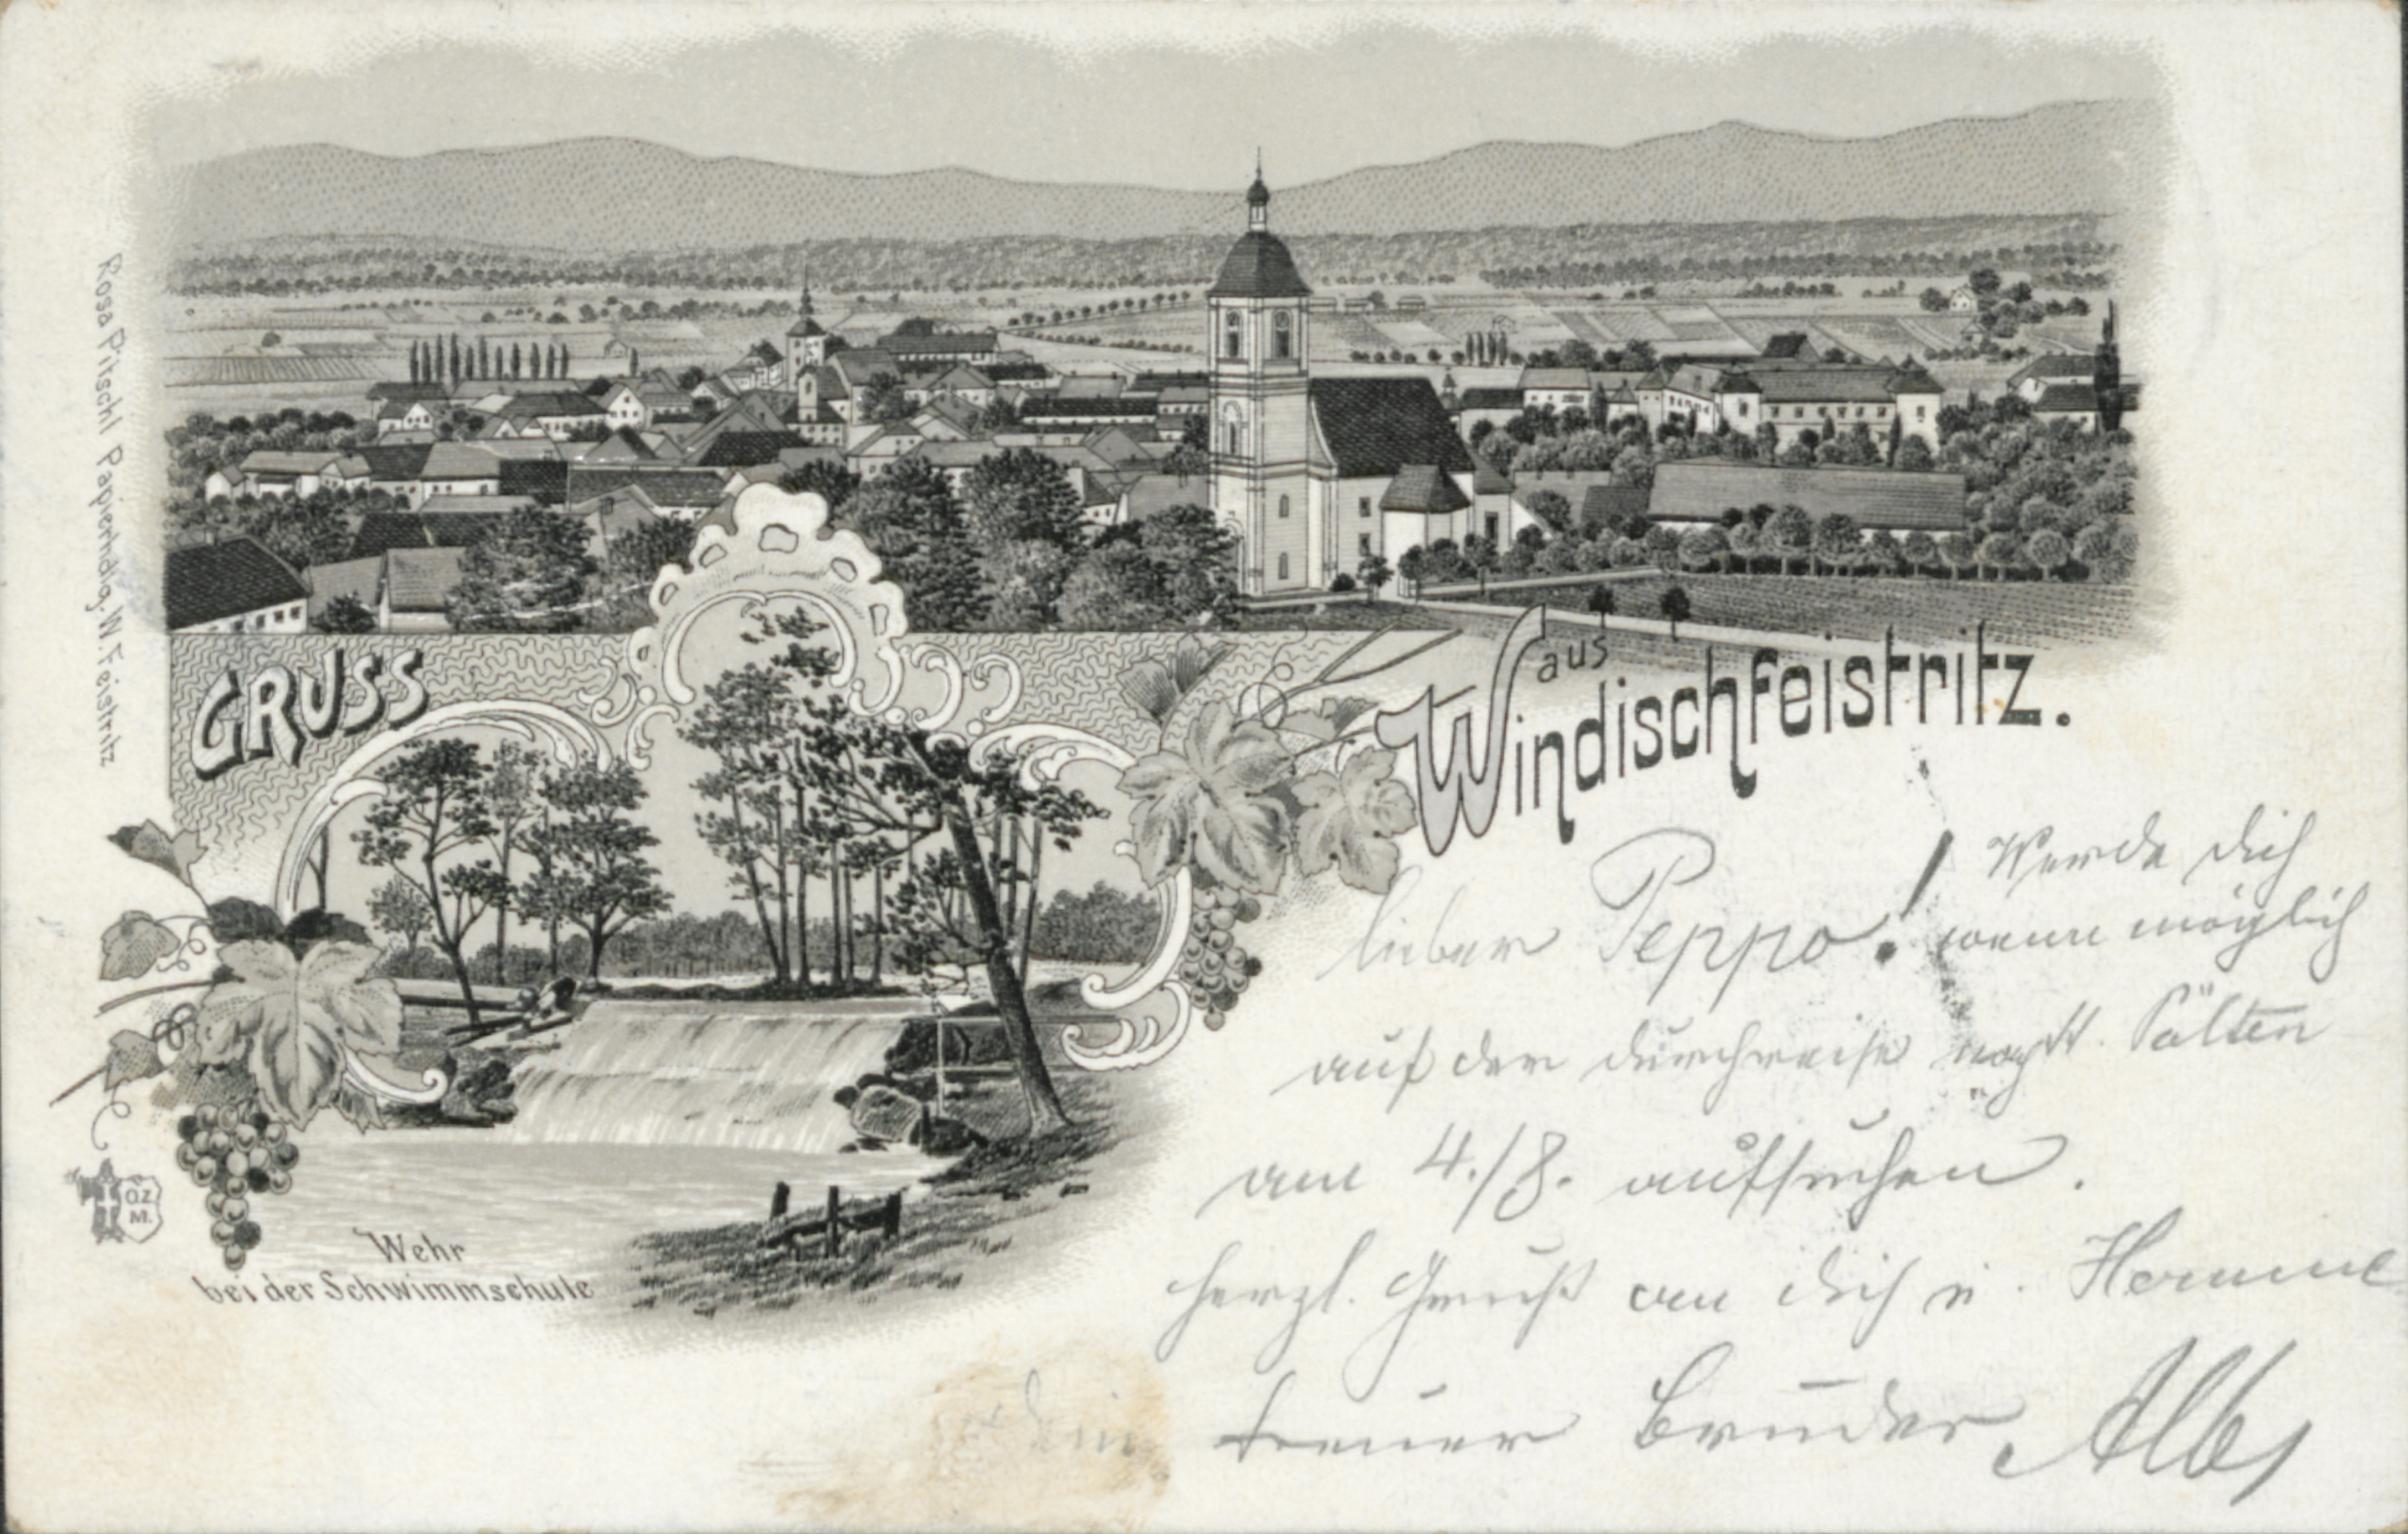 Rosa Pitschl Papierhdlg. W. Feistritz
GRUSS
aus
Windischfeistritz.
Ö.Z.
M.
Wehr
bei der Schwimmschule
Werde dich
lieber Peppo! wenn möglich
auf der Durchreise St. Pölten
am 4./8. aufsuchen.
herzl. Gruß an dich u.
Dein treuer Bruder